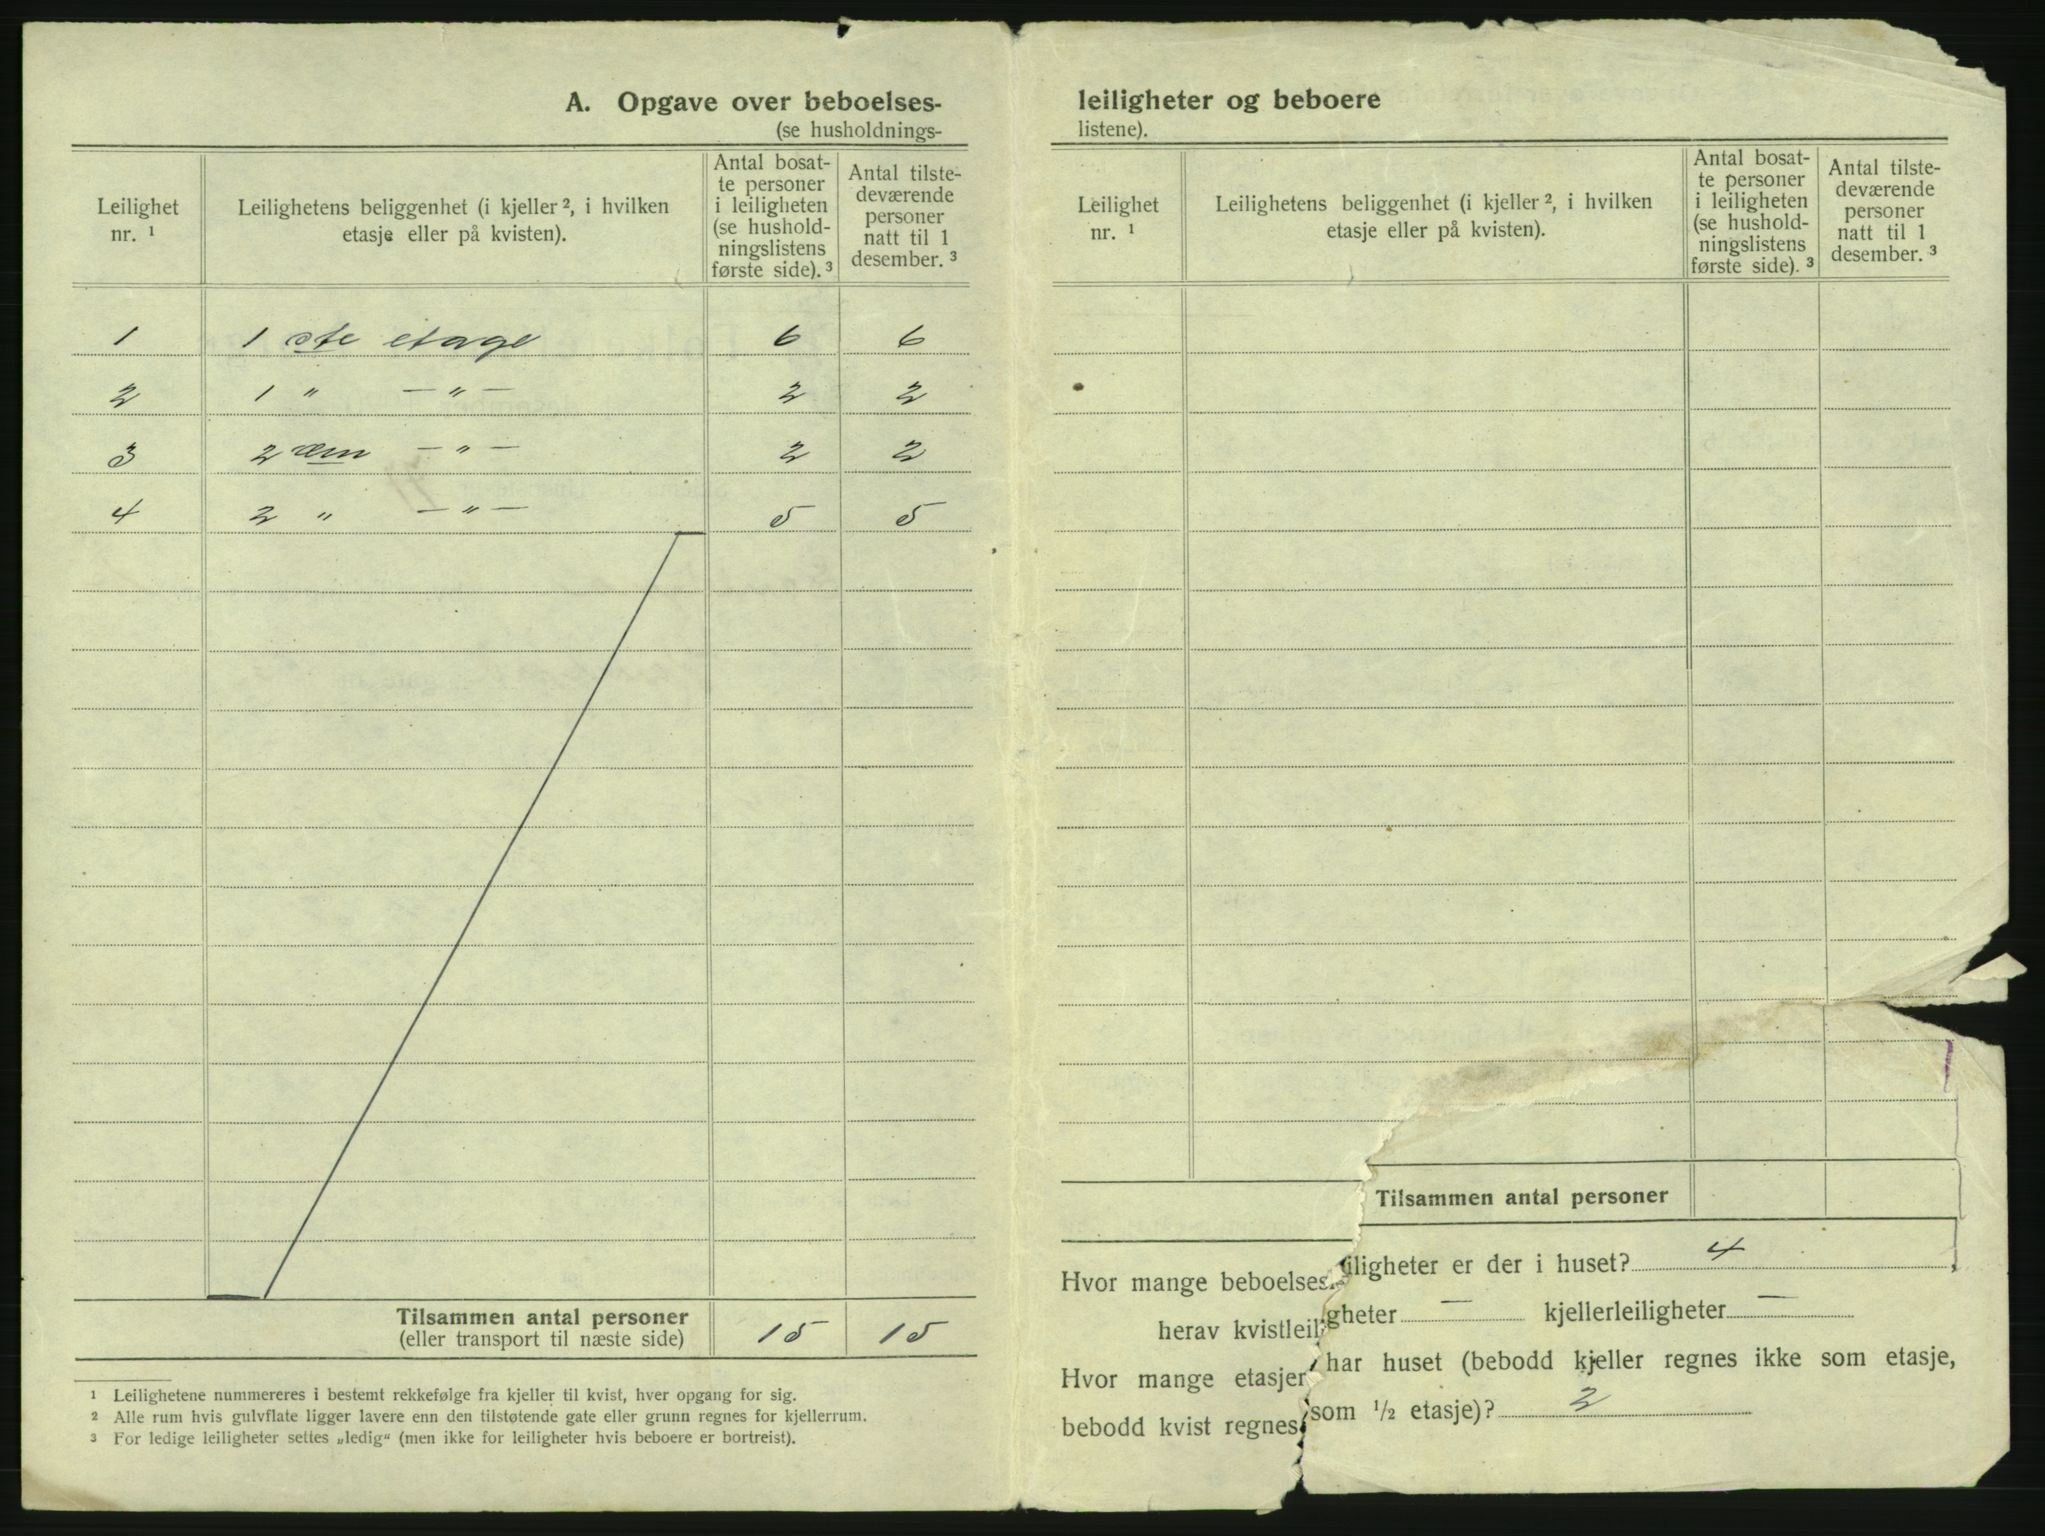 A. Opgave over beboelses-
(se husholdnings-
Leilighet
nr. ¹
Leilighetens beliggenhet (i kjeller ², i hvilken
etasje eller på kvisten).
Antal bosat-
te personer
i leiligheten
(se hushold-
ningslistens
første side). ³
Antal tilste-
deværende
personer
natt til 1
desember. ³
1 1 ste etage 6 6
2 1 " — " — 2 2
3 2 den — " — 2 2
4 2 " — " — 5 5
Tilsammen antal personer
(eller transport til næste side)
15 15
¹ Leilighetene nummereres i bestemt rekkefølge fra kjeller til kvist, hver opgang for sig.
² Alle rum hvis gulvflate ligger lavere enn den tilstøtende gate eller grunn regnes for kjellerrum.
³ For ledige leiligheter settes „ledig“ (men ikke for leiligheter hvis beboere er bortreist).
leiligheter og beboere
listene).
Leilighet
nr. ¹
Leilighetens beliggenhet (i kjeller ², i hvilken
etasje eller på kvisten).
Antal bosat-
te personer
i leiligheten
(se hushold-
ningslistens
første side). ³
Antal tilste-
deværende
personer
natt til 1
desember. ³
Tilsammen antal personer
Hvor mange beboelses iligheter er der i huset? 4
herav kvistleil gheter — kjellerleiligheter —
Hvor mange etasjer har huset (bebodd kjeller regnes ikke som etasje,
bebodd kvist regnes som ½ etasje)? 2